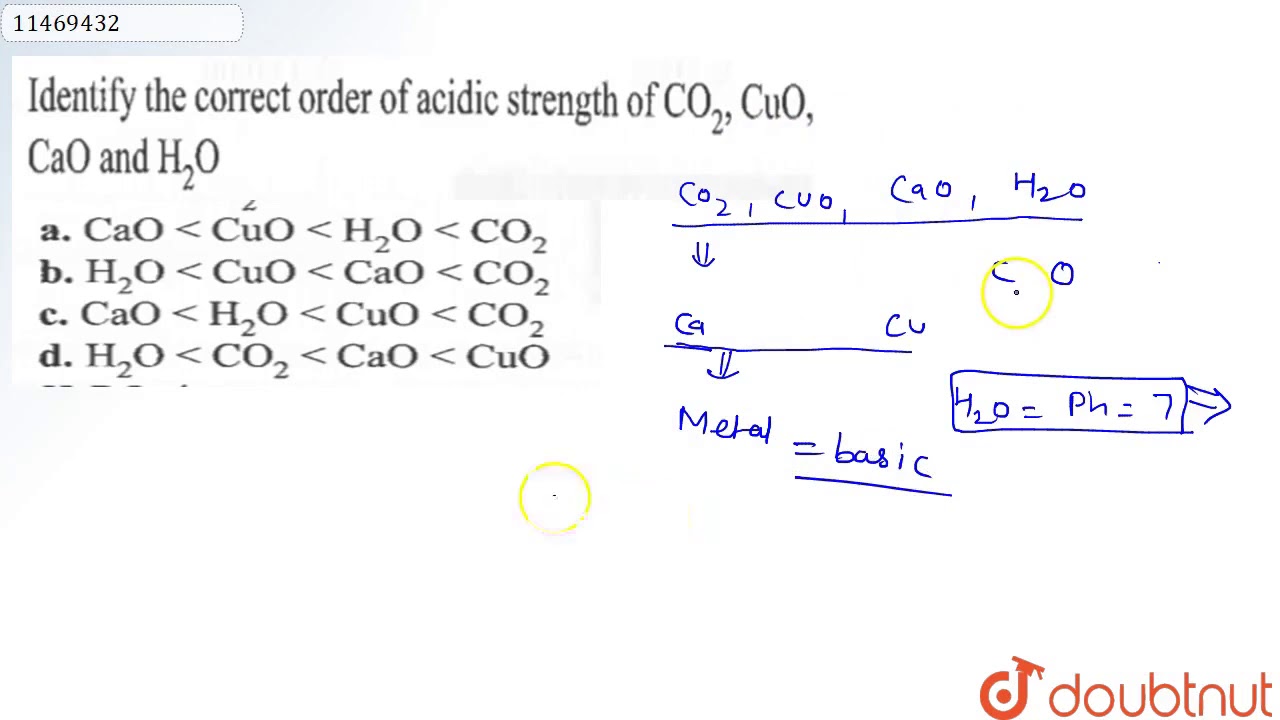 11469432
Identify the correct order of acidic strength of CO₂, CuO,
CaO and H₂O
a. CaO < CuO < H₂O < CO₂
b. H₂O < CuO < CaO < CO₂
c. CaO < H₂O < CuO < CO₂
d. H₂O < CO₂ < CaO < CuO
CO₂, CuO, CaO, H₂O
⇓
C O
Ca Cu
⇓
H₂O = Ph = 7 ⇒
Metal = basic
doubtnut